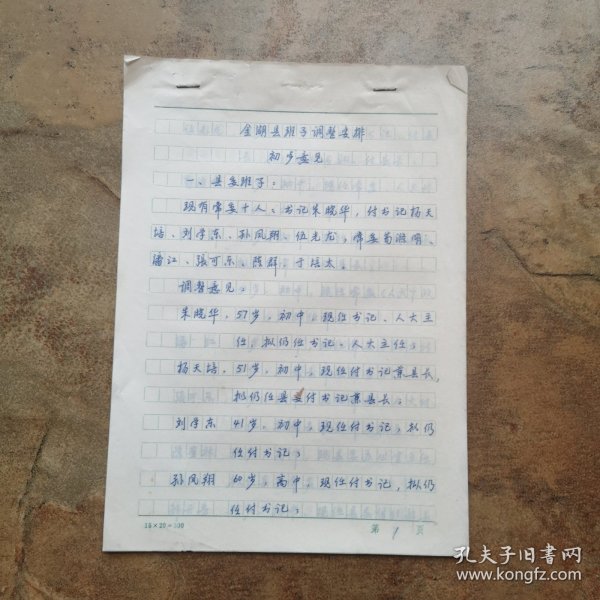 金湖县班子调整安排
初步意见
一、县委班子:
现有常委十人:书记朱晓华,付书记杨天
培、刘学东、孙凤翔、伍光龙;常委苟游明、
潘江、张可东、陈群、于培太。
调整意见:
朱晓华,57岁,初中,现任书记、人大主
任,拟仍任书记、人大主任;
杨天培,51岁,初中,现任付书记兼县长,
拟仍任县委付书记兼县长;
刘学东 41岁,初中,现任付书记,拟仍
任付书记;
孙凤翔 60岁,高中,现任付书记,拟仍
任付书记;
15×20=300
第 1 页
孔夫子旧书网
www.kongfz.com